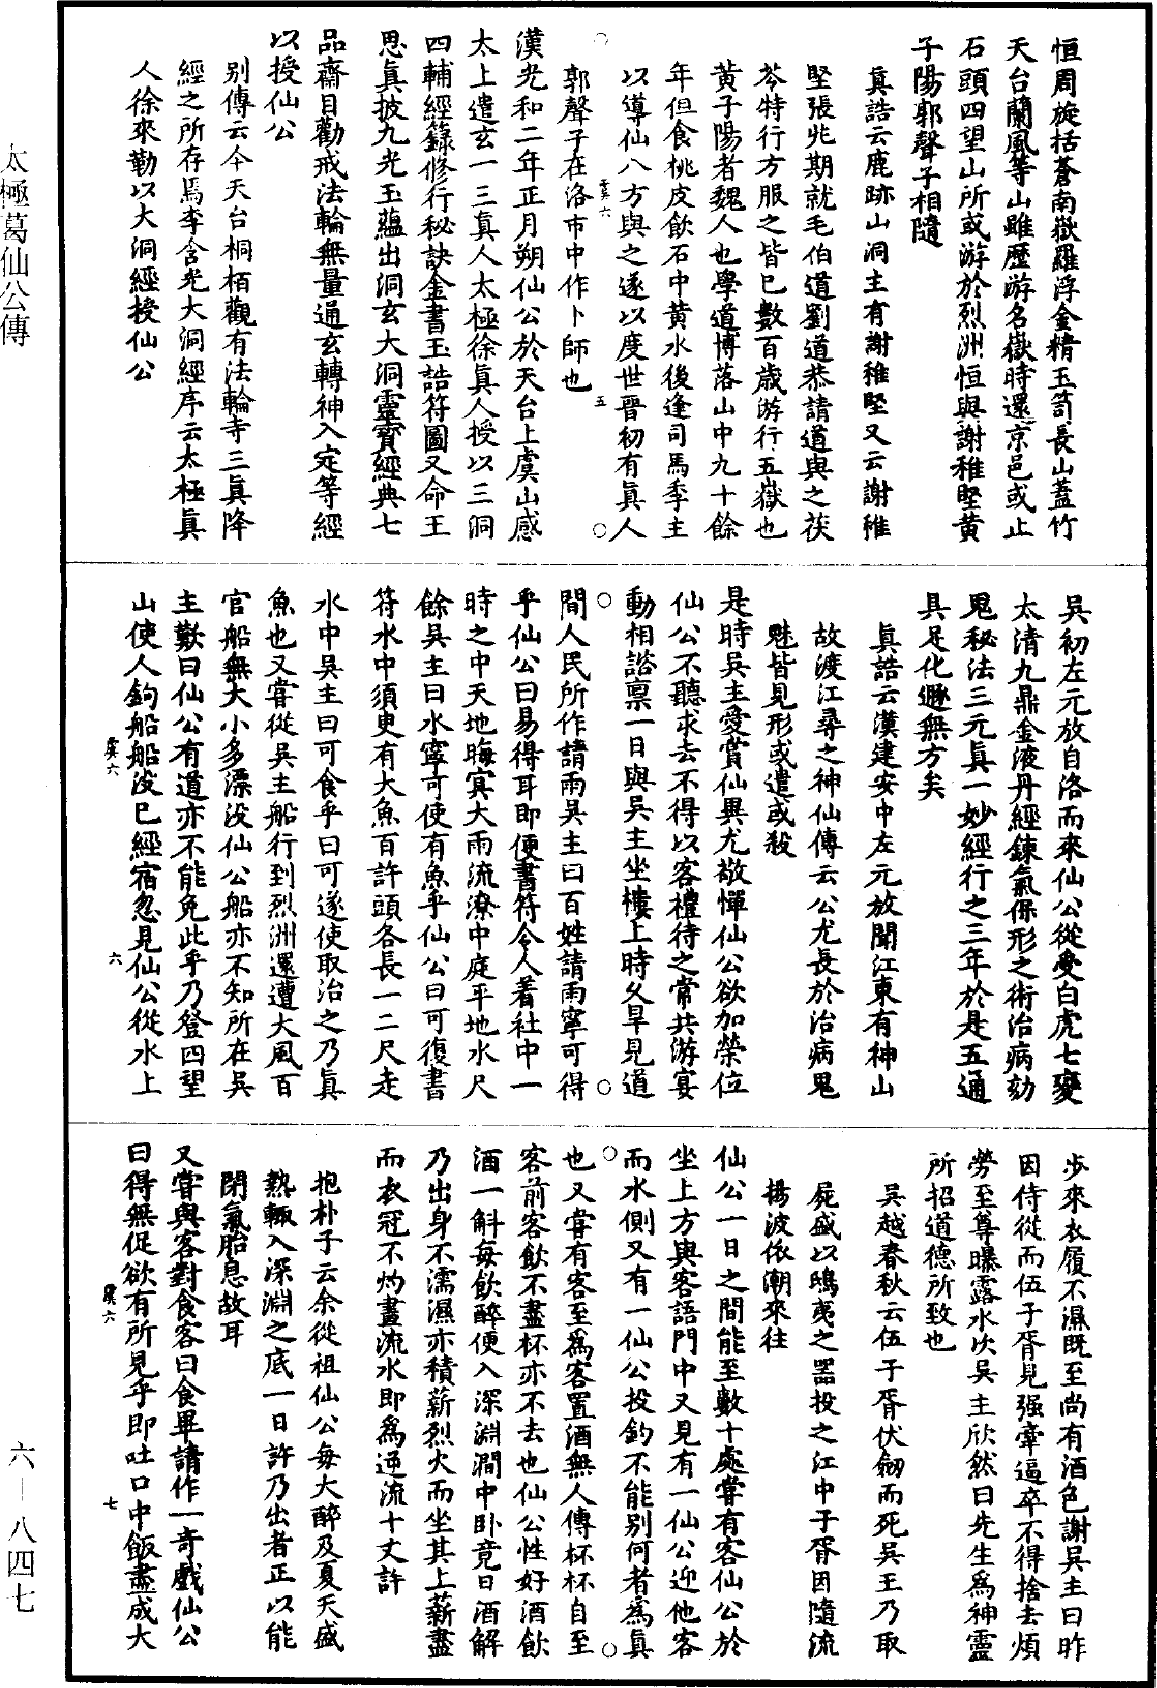 恒周旋括蒼南嶽羅浮金精玉笥長山蓋竹
天台蘭風等山雖歷游名嶽時還京邑或止
石頭四望山所或游於烈洲恒與謝稚堅黃
子陽郭聲子相隨
真誥云鹿跡山洞主有謝稚堅又云謝稚
堅張兆期就毛伯道劉道恭請道與之茯
苓特行方服之皆已數百歲游行五嶽也
黃子陽者魏人也學道博落山中九十餘
年但食桃皮飲石中黃水後逢司馬季主
以導仙八方與之遂以度世晉初有真人
郭聲子在洛市中作卜師也
虞六
五
漢光和二年正月朔仙公於天台上虞山感
太上遣玄一三真人太極徐真人授以三洞
四輔經籙修行秘訣金書玉誥符圖又命王
思真披九光玉蘊出洞玄大洞靈寶經典七
品齋目勸戒法輪無量通玄轉神入定等經
以授仙公
別傳云今天台桐栢觀有法輪寺三真降
經之所存焉李含光大洞經序云太極真
人徐來勒以大洞經授仙公
吳初左元放自洛而來仙公從受白虎七變
太清九鼎金液丹經鍊氣保形之術治病劾
鬼秘法三元真一妙經行之三年於是五通
具足化遯無方矣
真誥云漢建安中左元放聞江東有神山
故渡江尋之神仙傳云公尤長於治病鬼
魅皆見形或遣或殺
是時吳主愛賞仙異尤敬憚仙公欲加榮位
仙公不聽求去不得以客禮待之常共游宴
動相諮稟一日與吳主坐樓上時久旱見道
間人民所作請雨吳主曰百姓請雨寧可得
乎仙公曰易得耳即便書符令人着社中一
時之中天地晦冥大雨流潦中庭平地水尺
餘吳主曰水寧可使有魚乎仙公曰可復書
符水中須臾有大魚百許頭各長一二尺走
水中吳主曰可食乎曰可遂使取治之乃真
魚也又嘗從吳主船行到烈洲還遭大風百
官船無大小多漂沒仙公船亦不知所在吳
主歎曰仙公有道亦不能免此乎乃登四望
山使人鉤船船沒已經宿忽見仙公從水上
虞六
六
步來衣履不濕既至尚有酒色謝吳主曰昨
因侍從而伍子胥見强牽逼卒不得捨去煩
勞至尊曝露水次吳主欣然曰先生為神靈
所招道德所致也
吳越春秋云伍子胥伏劒而死吳王乃取
屍盛以鴟夷之器投之江中子胥因隨流
揚波依潮來往
仙公一日之間能至數十處嘗有客仙公於
坐上方與客語門中又見有一仙公迎他客
而水側又有一仙公投釣不能別何者為真
也又嘗有客至為客置酒無人傳杯杯自至
客前客飲不盡杯亦不去也仙公性好酒飲
酒一斛每飲醉便入深淵澗中卧竟日酒解
乃出身不濡濕亦積薪烈火而坐其上薪盡
而衣冠不灼畫流水即為逆流十丈許
抱朴子云余從祖仙公每大醉及夏天盛
熱輒入深淵之底一日許乃出者正以能
閉氣胎息故耳
又嘗與客對食客曰食畢請作一奇戲仙公
曰得無促欲有所見乎即吐口中飯盡成大
虞六
七
太極葛仙公傳
六－八四七